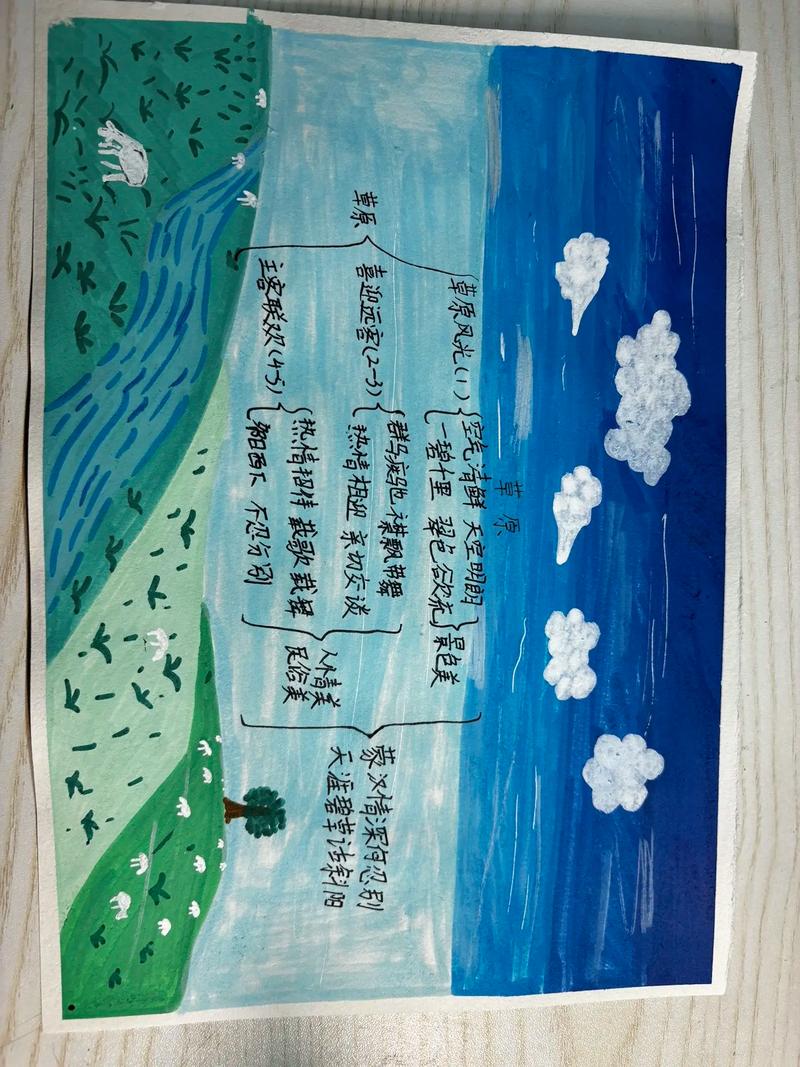 草原
草原
草原风光(1)
空气清鲜 天空明朗
一碧千里 翠色欲流
景色美
喜迎远客(2-3)
群马疾驰 襟飘带舞
热情相迎 亲切交谈
主客联欢(4-5)
热情招待 载歌载舞
夕阳西下 不忍分别
人情美
民俗美
蒙汉情深何忍别
天涯碧草话斜阳